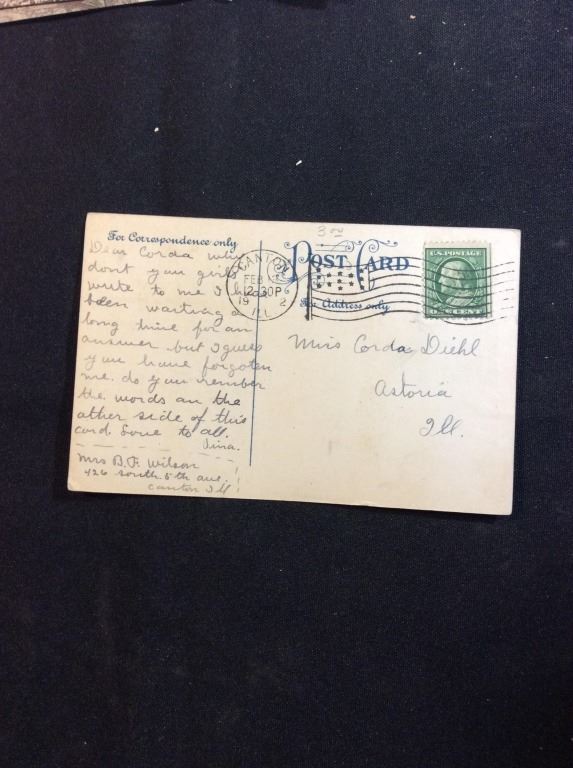 For Correspondence only
Dear Corda why
dont you girls
write to me I have
been waiting a
long time for an
answer but I guess
you have forgoten
me. do you rember
the words on the
other side of this
card Love to all.
Tina.
Mrs B. F. Wilson
426 South 5th ave.
Canton Ill
3 00
POST CARD
For Address only
CANTON
FEB
12-30P
19 2
ILL
U.S. POSTAGE
CENT
Miss Corda Diehl
Astoria
Ill.